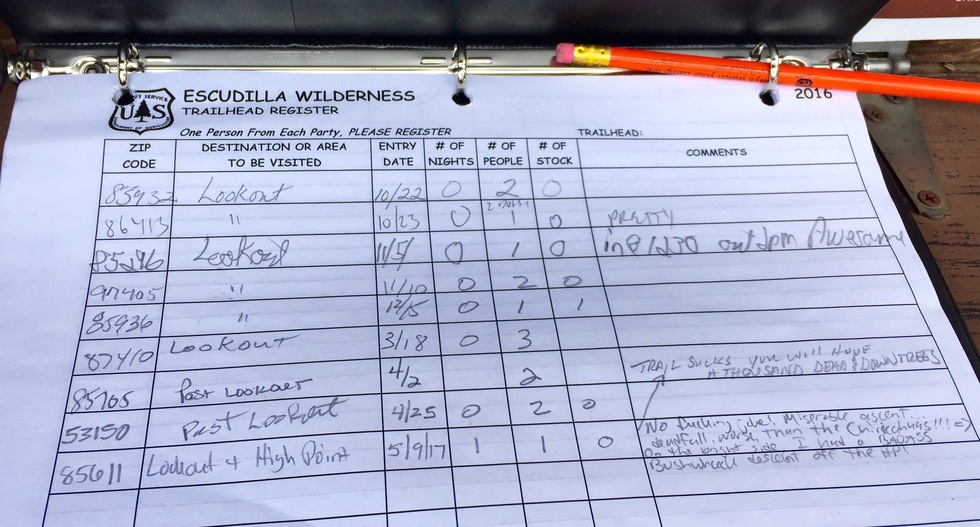 U S
ESCUDILLA WILDERNESS
TRAILHEAD REGISTER
2016
One Person From Each Party, PLEASE REGISTER TRAILHEAD:
ZIP CODE DESTINATION OR AREA TO BE VISITED ENTRY DATE # OF NIGHTS # OF PEOPLE # OF STOCK COMMENTS
85932 Lookout 10/22 0 2 0
86413 " 10/23 0 1 0 PRETTY
85296 Lookout 11/5/ 0 1 0 in@1230 out2pm Awesome
97405 " 11/10 0 2 0
85936 " 12/5 0 1 1
87410 LOOKOUT 3/18 0 3
85705 Past LOOKOUT 4/2 2 TRAIL SUCKS YOU WILL HOPE
A THOUSAND DEAD & DOWN TREES
53150 Past LOOKOUT 4/25 0 2 0
85611 Lookout + High Point 5/9/17 1 1 0 No fucking joke! Miserable ascent...
deadfall worse than the Chiricahuas!!! =)
On the bright side I had a BADASS
Bushwhack descent off the HP!